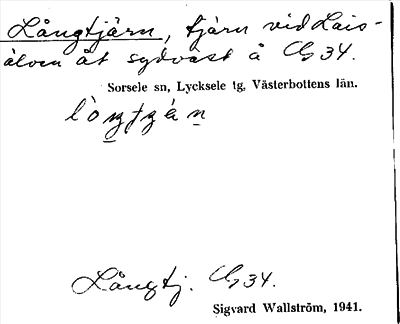 Långtjärn, tjärn vid Lais-
älven åt sydväst å Cb 34.
Sorsele sn, Lycksele tg, Västerbottens län.
Långtj. Cb 34.
Sigvard Wallström, 1941.